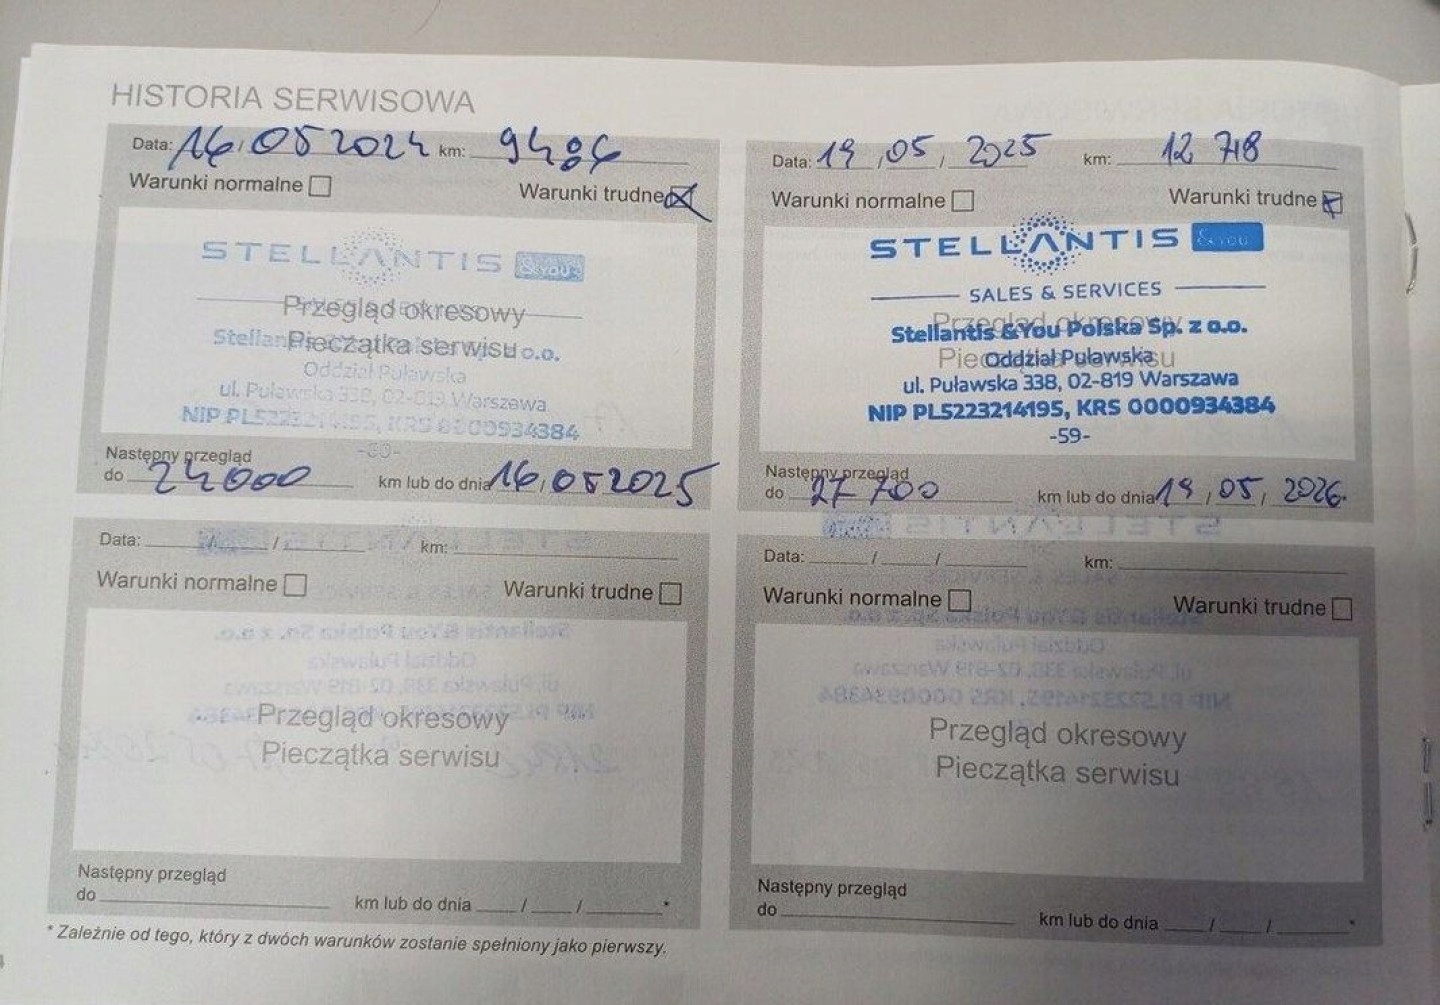 HISTORIA SERWISOWA
Data: 16/05 2024 km: 9486
Warunki normalne Warunki trudne
STELLANTIS &YOU
Przegląd okresowy
Pieczątka serwisu
Stellantis o.o.
Oddział Puławska
ul. Puławska 338, 02-819 Warszawa
NIP PL5223214195, KRS 0000934384
Następny przegląd
do 24000 km lub do dnia 16/05 2025
Data: 19/05/2025 km: 12 718
Warunki normalne Warunki trudne
STELLANTIS &YOU
SALES & SERVICES
Przegląd okresowy
Stellantis &You Polska Sp. z o.o.
Pieczątka serwisu
Oddział Puławska
ul. Puławska 338, 02-819 Warszawa
NIP PL5223214195, KRS 0000934384
-59-
Następny przegląd
do 27 700 km lub do dnia 19/05/2026
Data: / / km:
Warunki normalne Warunki trudne
Przegląd okresowy
Pieczątka serwisu
Następny przegląd
do km lub do dnia / / *
Data: / / km:
Warunki normalne Warunki trudne
Przegląd okresowy
Pieczątka serwisu
Następny przegląd
do km lub do dnia / / *
* Zależnie od tego, który z dwóch warunków zostanie spełniony jako pierwszy.